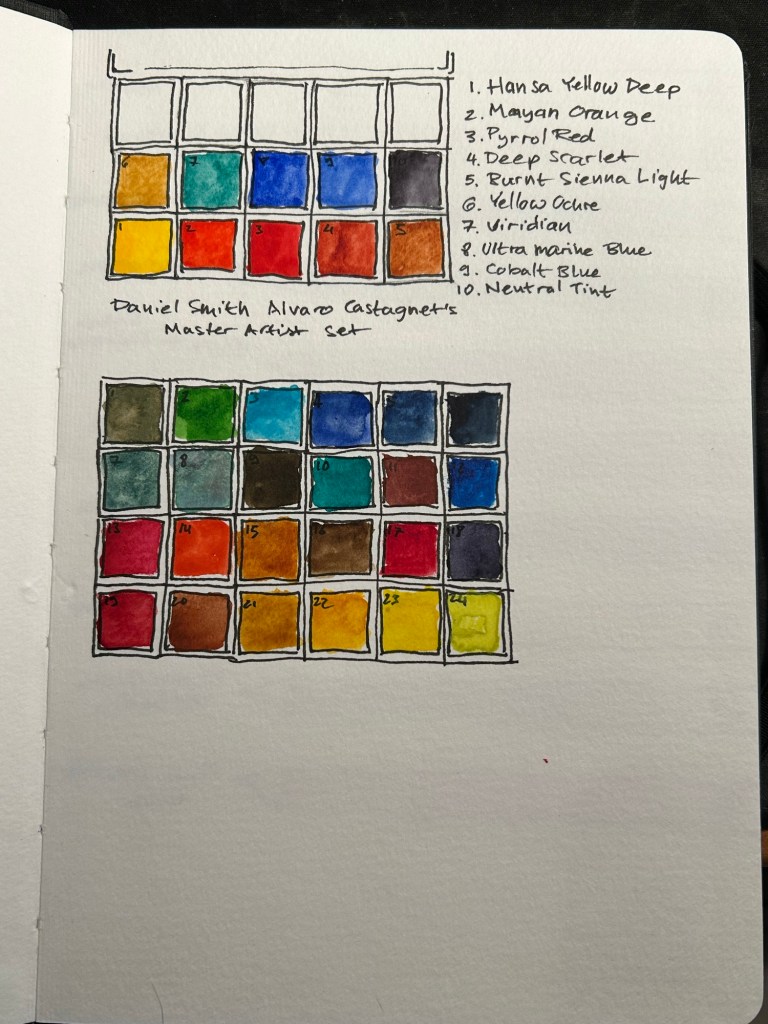 1. Hansa Yellow Deep
2. Mayan Orange
3. Pyrrol Red
4. Deep Scarlet
5. Burnt Sienna Light
6. Yellow Ochre
7. Viridian
8. Ultramarine Blue
9. Cobalt Blue
10. Neutral Tint
6 7 8 9 10
1 2 3 4 5
Daniel Smith Alvaro Castagnet's
Master Artist Set
1 2 3 4 5
7 8 9 10 11 12
13 14 15 16 17 18
19 20 21 22 23 24